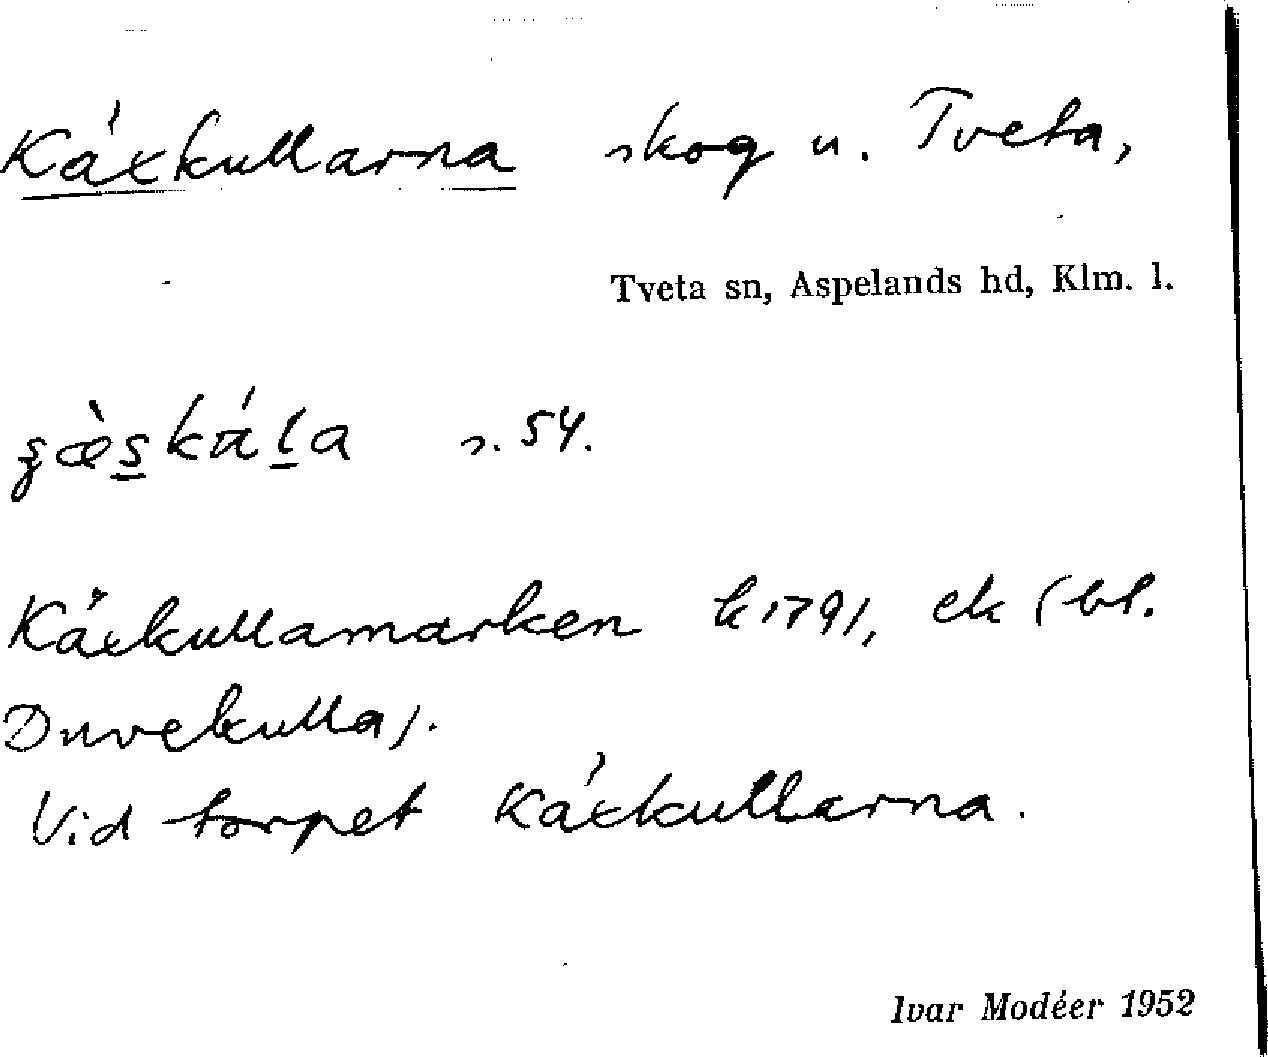 Käxkullarna skog u. Tveta,
Tveta sn, Aspelands hd, Klm. l.
s. 54.
Käxkullamarken k 1791, ek (bl.
Duvekulla).
Vid torpet Käxkullarna.
Ivar Modéer 1952